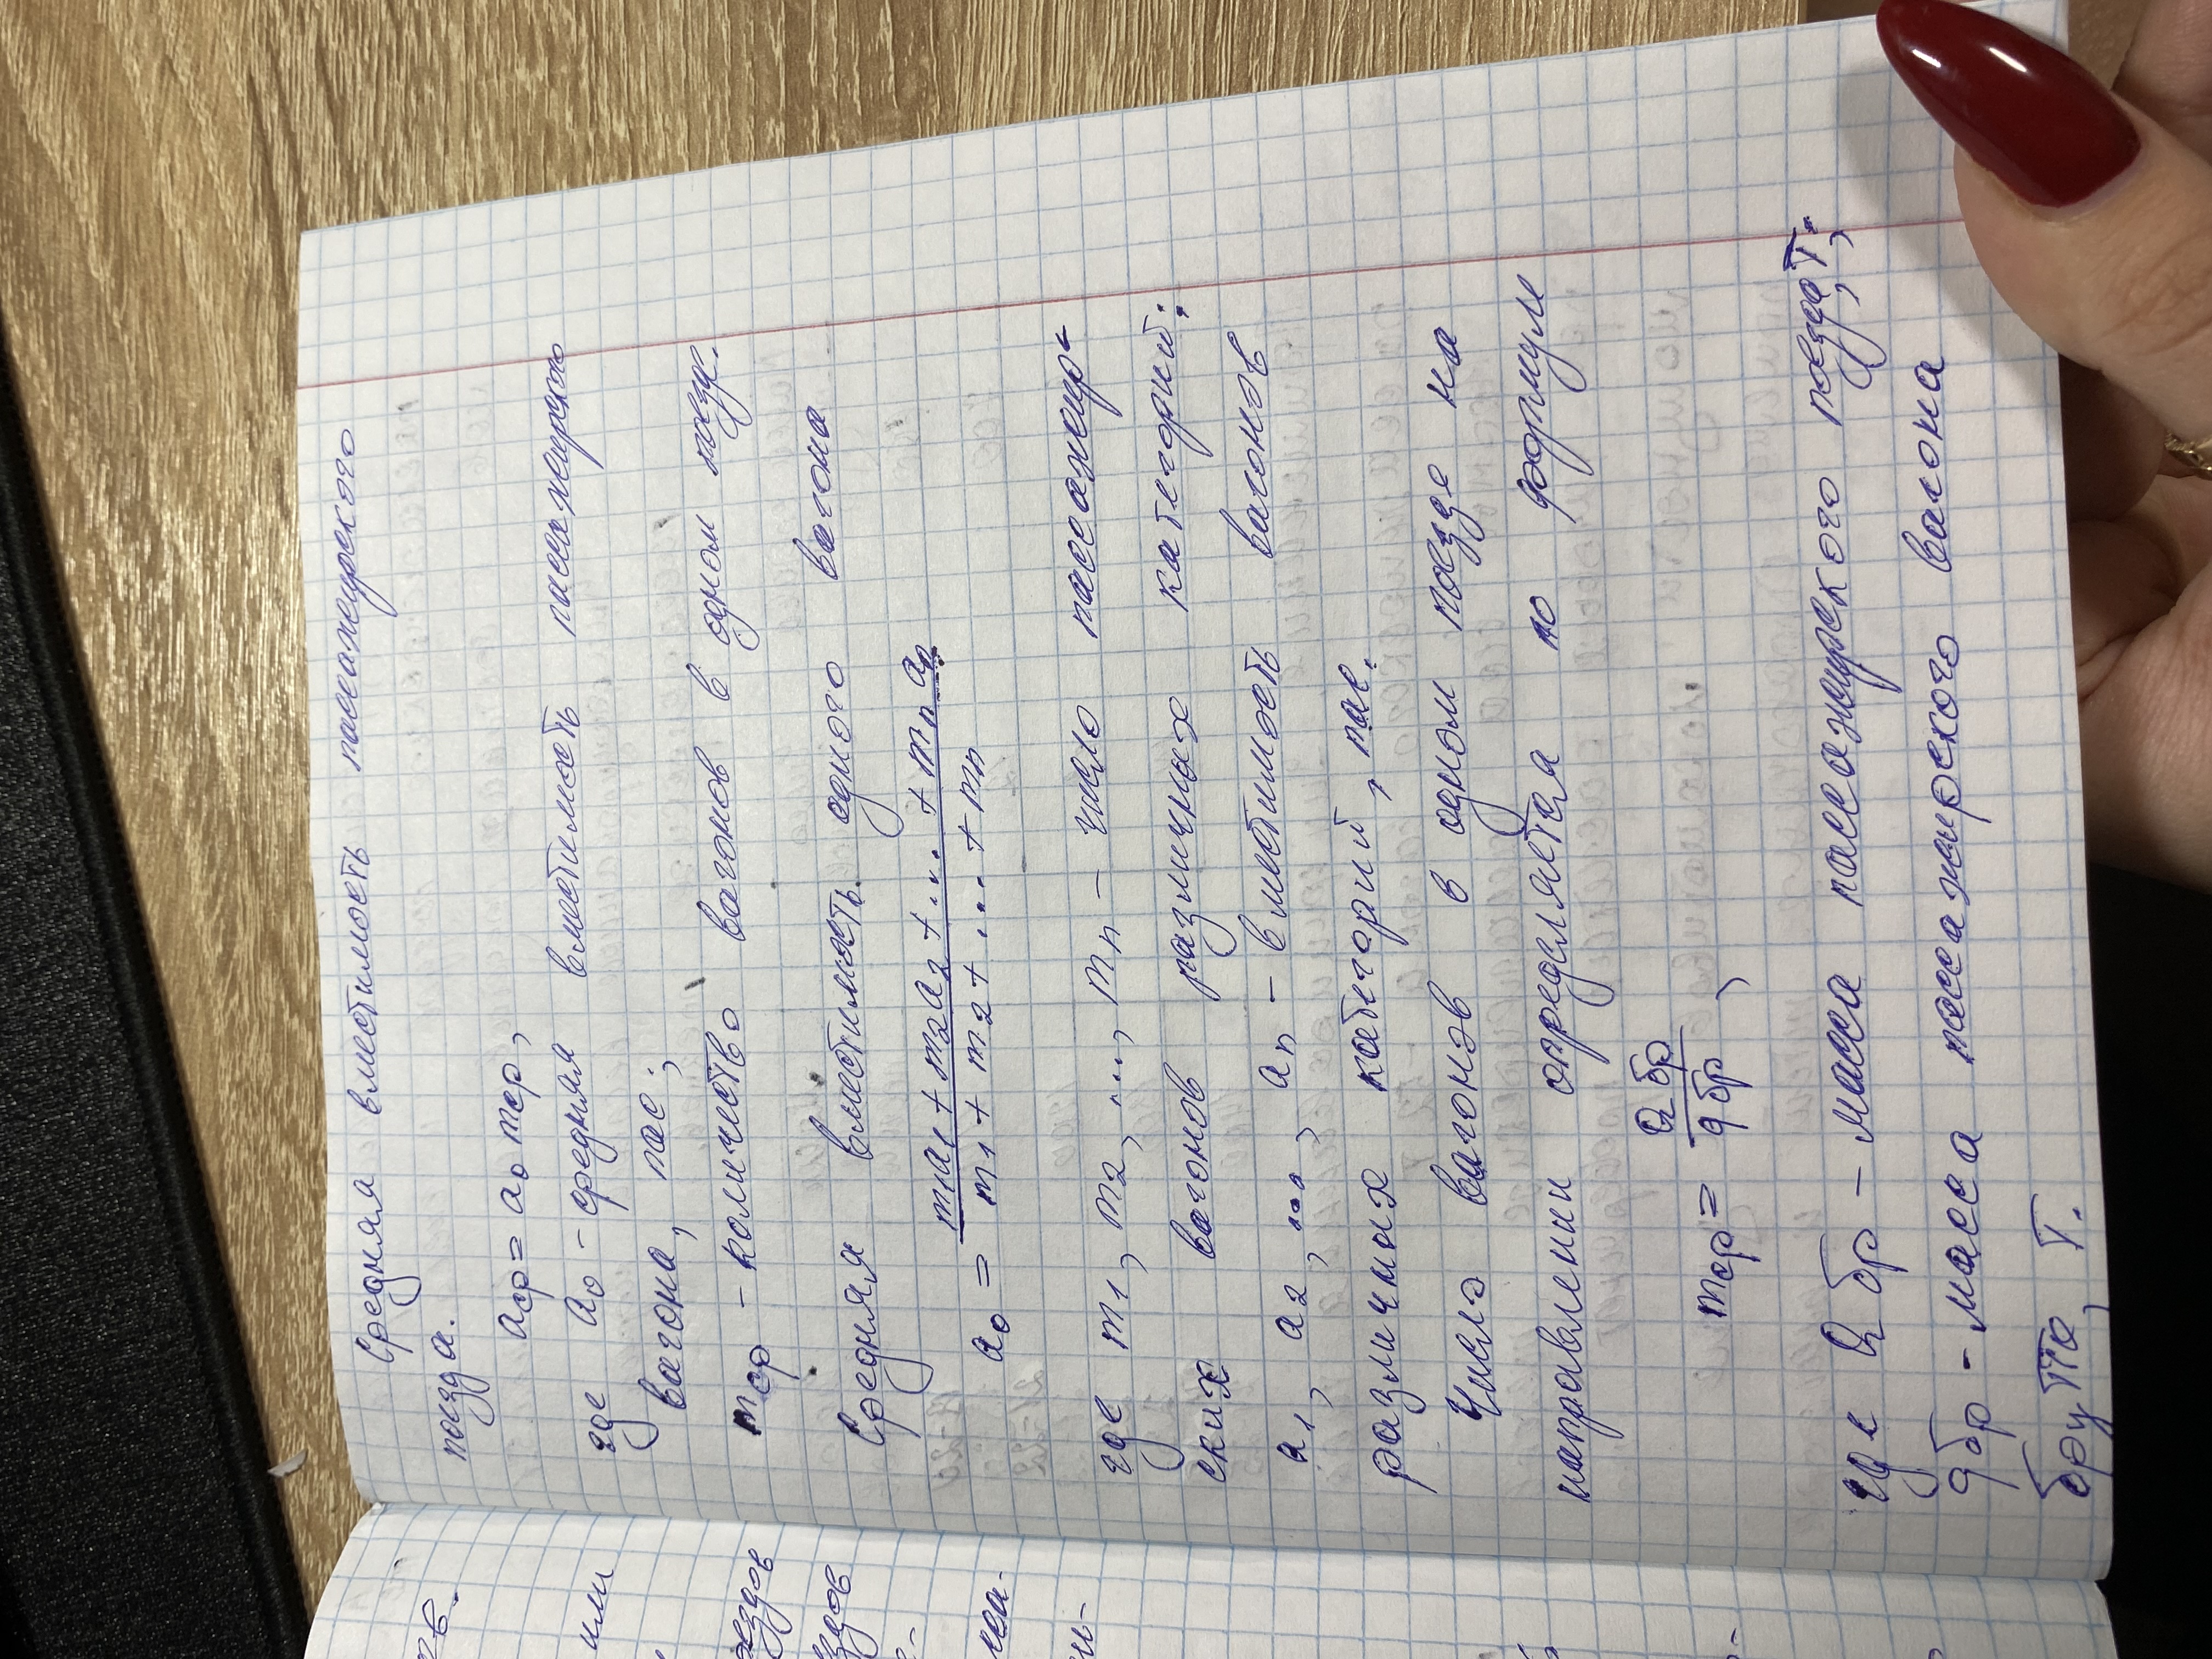 Средняя вместимость пассажирского
поезда.
aср = a₀ mср,
где a₀ – средняя вместимость пассажирского
вагона, пас;
mср – количество вагонов в одном поезде.
Средняя вместимость одного вагона
a₀ = (m₁a₁ + m₂a₂ + ... + mₙ aₙ) / (m₁ + m₂ + ... + mₙ)
где m₁, m₂, ..., mₙ – число пассажир-
ских вагонов различных категорий:
a₁, a₂, ..., aₙ – вместимость вагонов
различных категорий, пас.
Число вагонов в одном поезде на
направлении определяется по формуле
mср = Q бр / q бр ,
где Q бр – масса пассажирского поезда, т.
q бр – масса пассажирского вагона
брутто, т.
тв.
или
ездов
здов